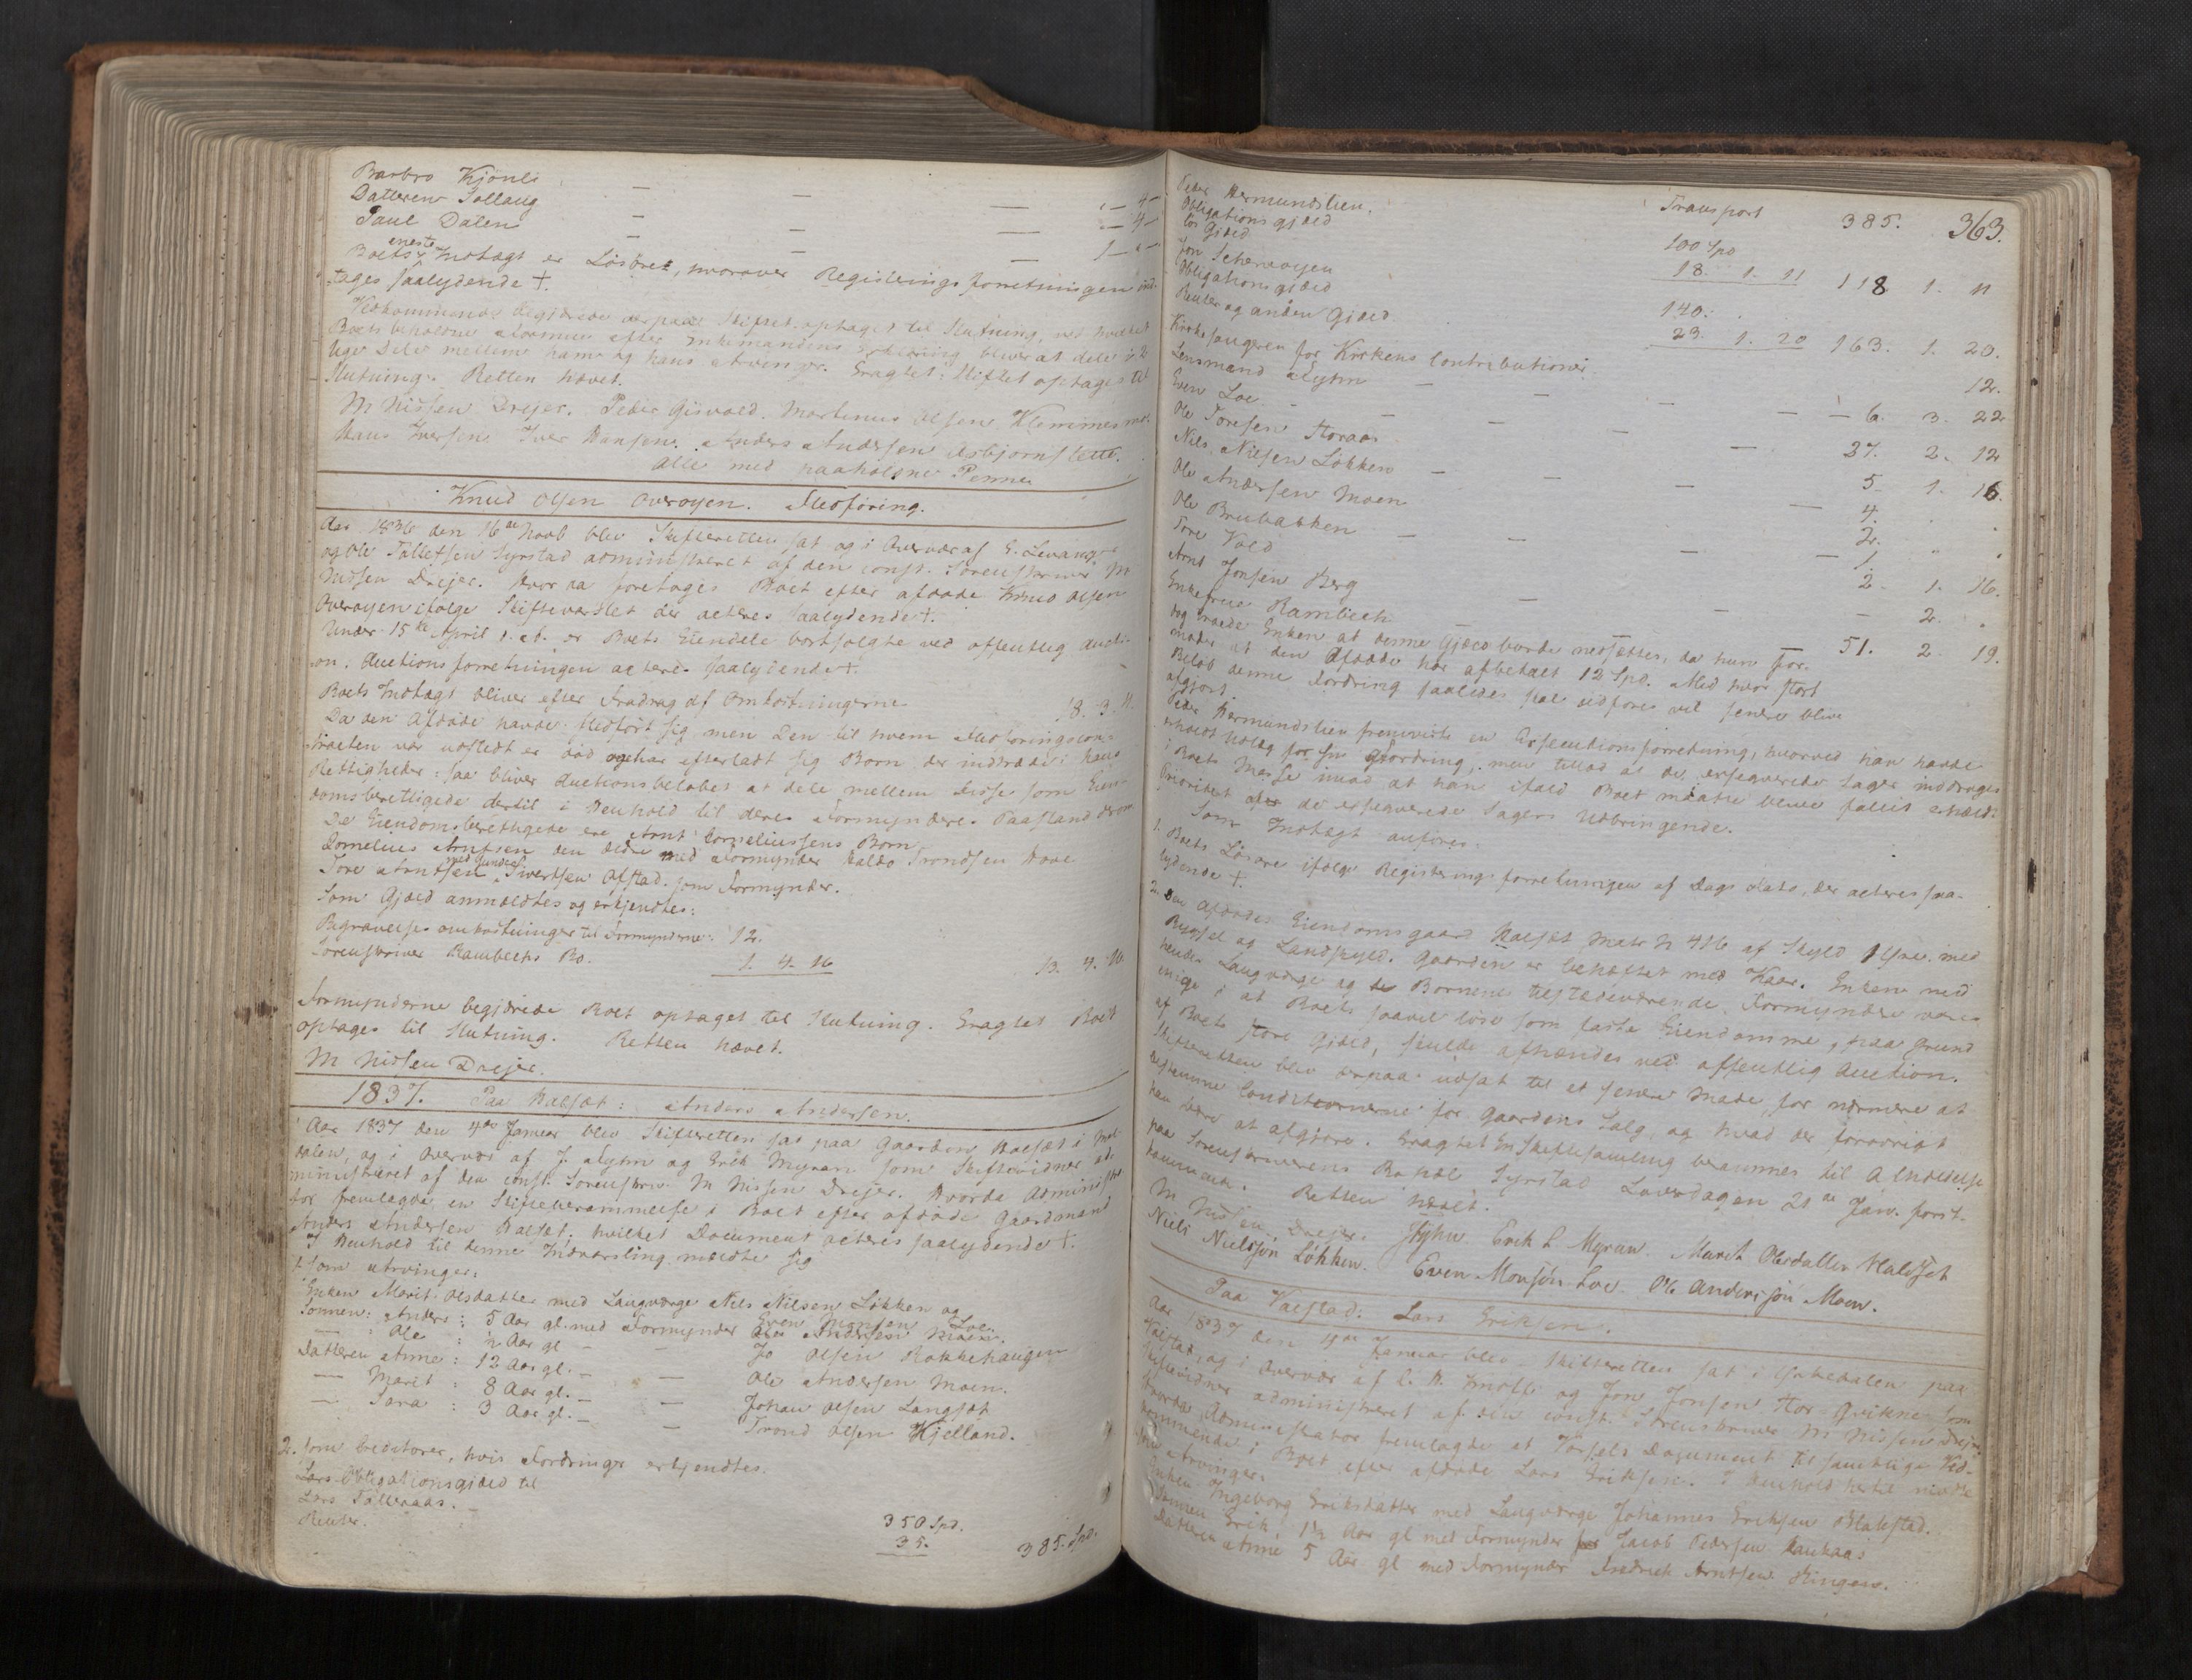 Barbro Kjönli — — — " — 4 —
Datteren Sollaug — — — " — 4 —
Paul Dalen — — — 1 — " —
Boets eneste Indtægt er Lösöret, hvorover Registeringsforretningen ind-
tages saalydende +.
Vedkommende begjerede derpaa Skiftet optaget til Slutning, ved hvilket
Boets beholdne Formue efter Enkemandens Erklæring bliver at dele i 2
lige Dele mellem ham og hans Arvinger. Eragtet: Skiftet optages til
Slutning. Retten hævet.
M Nissen Drejer. Peder Gisvold. Martinus Olsen
Hans Iversen Iver Hansen. Anders Andersen Asbjornslette.
alle med paaholden Penne
Knud Olsen Overöyen. Fledföring.
Aar 1836 den 16de Novb blev Skifteretten sat og i Overvær af E. Levang
og Ole Tollefsen Syrstad administreret af den const. Sorenskriver M
Nissen Drejer. Hvor da foretoges Boet efter afdöde Knud Olsen
Overöyen ifölge Skiftevarslet der acteres saalydende +.
Under 15de April d. A. er Boets Eiendele bortsolgte ved offentlig Aucti-
on. Auctionsforretningen acteres saalydende +.
Boets Indtægt bliver efter Fradrag af Omkostningerne 18. 3. 11.
Da den Afdöde havde fledfört sig, men Den til hvem Fledföringscon-
tracten var udstedt er död og har efterladt sig Börn der indtræde i hans
Rettigheder: saa bliver Auctionsbelöbet at dele mellem disse som Eien-
domsberettigede dertil i Henhold til deres Formynderes Paastand derom
De Eiendomsberettigede ere Arnt Corneliussens Börn
Cornelius Arntsen den ældre med Formynder Haldo Trondsen Hove
Tore Arntsen med Gunder Sivertsen Ofstad som Formynder.
Som Gjæld anmeldtes og erkjendtes:
Begravelses omkostninger til Formynderne: 12.
Sorenskriver Rambechs Bo. 1. 4. 16 13. 4. 16
Formynderne begjærede Boet optaget til Slutning. Eragtet Boet
optages til Slutning. Retten hævet.
M Nissen Drejer.
1837. Paa Halsæt: Anders Andersen.
Aar 1837 den 4de Januar blev Skifteretten sat paa Gaarden Halsæt i Mel-
dalen, og i Overvær af J. Lyhn og Erik Myran som Skiftevidner ad-
ministreret af den const. Sorenskriv. M Nissen Drejer. Hvorda Administra-
tor fremlagde en Skifteberammelse i Boet efter afdöde Gaardmand
Anders Andersen Halsæt; hvilket Document acteres saalydende +.
I Henhold til denne Indvarsling meldte sig
1. som Arvinger:
Enken Marit Olsdatter med Laugværge Nils Nilsen Lökken og
Sönnen: Anders: 5 Aar gl. med Formynder Even Monsen Loe.
— Ole : ½ Aar gl — — Jo Olsen Rokkehaugen
Datteren Anne: 12 Aar gl. — — Ole Andersen Moen.
— Marit : 8 Aar gl. — — Johan Olsen Langsæt
— Sara : 3 Aar gl. — — Trond Olsen Hjelland.
2. som Creditorer, hvis Fordringer erkjendtes.
Obligationsgjæld til
Lars Tolleraas. — 350 Spd.
Renter. 35. 385. Spd.
363.
Transport 385.
Peder Hermundslien.
Obligationsgjæld 100 Spd
lös Gjæld 18. 1. 11 118 1. 11
Jon Schervöyen
Obligationsgjæld 140. .
Renter og anden Gjæld. 23. 1. 20 163. 1. 20.
Kirkesangeren for Kirkens Contributioner 12.
Lensmand Lyhn — — — — 6. 3. 22
Even Loe — — — — 37. 2. 12
Ole Toresen Storaas — — — 5. 1. 16.
Nils Nilsen Lökken — — — 4. . .
Ole Andersen Moen — — — 2. . .
Ole Brubakken — — — 1. . .
Tore Vold — — — 2. 1. 16.
Arnt Jonsen Berg — — — 2. .
Enkefrue Rambech — 51. 2. 19.
dog troede Enken at denne Gjæld burde nedsættes, da hun for-
moder at den Afdöde har afbetalt 12 Spd. Med hvor stort
Belöb denne Fordring saaledes skal udföres vil senere blive
afgjort.
Peder Hermundslien fremviste en Executionsforretning, hvorved han havde
erholdt Udlæg for sin Fordring, men tillod at de exsequerede Sager inddroges
i Boets Masse imod at han ifald Boet maatte blive fallit erholdt
Prioritet efter de exsequerede Sagers Udbringende.
Som Indtægt anföres:
1. Boets Lösöre ifölge Registeringsforretningen af Dags Dato, der acteres saa-
lydende +.
2. Den Afdödes Eiendomsgaard Halsæt Matr № 416 af Skyld 1 Öre med
Bygsel og Landskyld. Gaarden er behæftet med Kaar. Enken med
hendes Laugværge og Börnene tilstedeværende Formyndere vare
enige i at Boets saavel löse som faste Eiendomme, paa Grund
af Boets store Gjæld, skulde afhændes ved offentlig Auction.
Skifteretten blev derpaa udsat til et senere Möde for nærmere at
bestemme Conditionerne for Gaardens Salg, og hvad der forövrigt
kan være at afgjöre. Eragtet En Skiftesamling berammes til Afholdelse
paa Sorenskriverens Bopæl Syrstad Löverdagen 21de Jan. först-
kommende. Retten hævet.
M Nissen Drejer. JLyhn. Erik L Myran. Marit Olesdatter Halsset
Niels Nielssøn Løkken. Even Monsøn Loe. Ole Anderssøn Moen.
Paa Valstad: Lars Eriksen.
Aar 1837 den 4de Januar blev Skifteretten sat i Orkedalen paa
Valstad, og i Overvær af C. H. Knoff og Jon Jonsen Stor Qvikne som
Skiftevidner administreret af den const. Sorenskriver M Nissen Drejer
Hvorda Administrator fremlagde et Varsels Document til samtlige Ved-
kommende i Boet efter afdöde Lars Eriksen. I Henhold hertil mödte
som Arvinger:
Enken Ingeborg Eriksdatter med Laugværge Johannes Eriksen Blakstad.
Sönnen Erik: 1½ Aar gl med Formynder Jacob Pedersen Raukaas
Datteren Anne 5 Aar gl med Formynder Fredrik Arntsen Ringen.